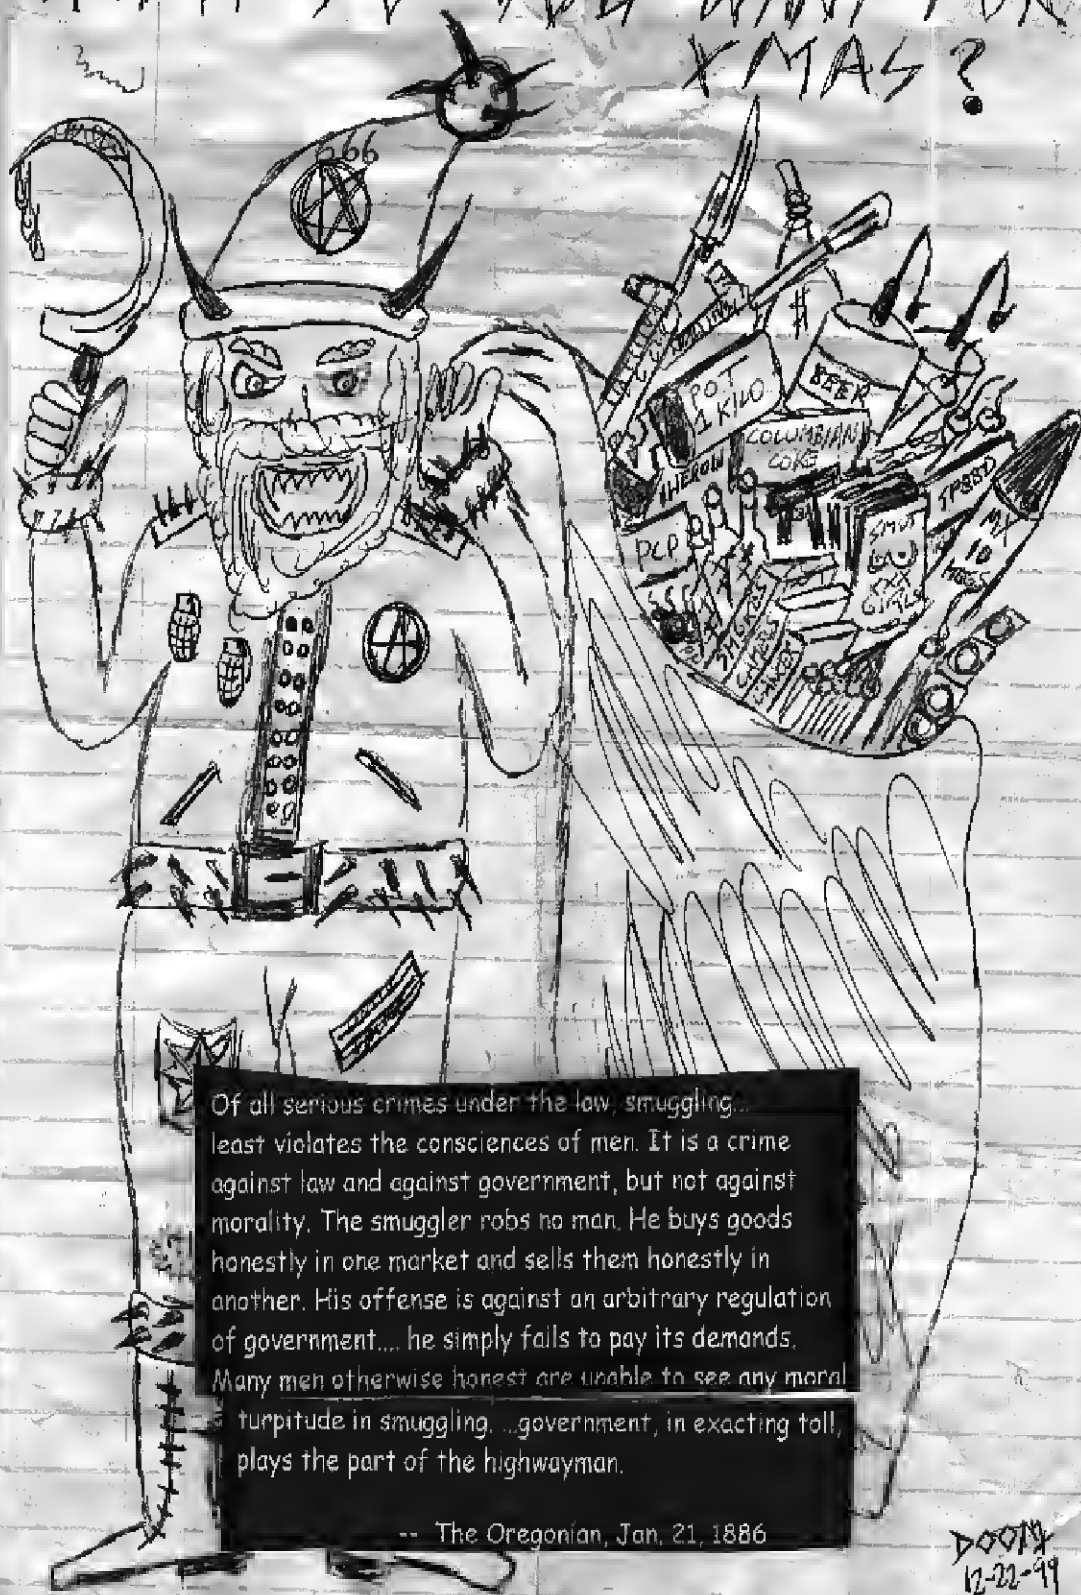 YOU WANT FOR
XMAS?
666
$
BEER
POT
1 KILO
COLUMBIAN
COKE
HEROIN
SPEED
PCP
SMUT
XXX
GIRLS
MX
10
Of all serious crimes under the law, smuggling...
least violates the consciences of men. It is a crime
against law and against government, but not against
morality. The smuggler robs no man. He buys goods
honestly in one market and sells them honestly in
another. His offense is against an arbitrary regulation
of government.... he simply fails to pay its demands.
Many men otherwise honest are unable to see any moral
turpitude in smuggling. ...government, in exacting toll,
plays the part of the highwayman.
-- The Oregonian, Jan. 21, 1886
DOOM
12-22-99